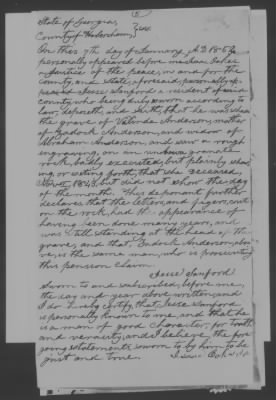 (5)
State of Georgia,
County of Habersham, } SS.
On this 7th day of January A.D. 1856
personally appeared before me Isaac Baker
a Justice of the peace, in and for the
county, and State, aforesaid, personally ap-
peared Jesse Sanford a resident of said
county, who being duly sworn according to
law, deposeth, and saith, that he was at
the grave of Valinda Anderson, mother
of Zadock Anderson, and widow of
Abraham Anderson, and saw a rough
engraving, on an granite
rock, badly executed, but plainly show-
ing, or setting forth, that she deceased,
1843, but did not show the day
of the month. This deponent further
declares that the letters, and figures, cut
on the rock, had the appearance of
having been done many years, and
was still standing at the head of the
grave, and that Zadock Anderson, abo-
ve, is the same man, who is prosecuting
this pension claim.
Jesse Sanford
Sworn to and subscribed, before me,
the day and year above written, and
I do hereby certify, that Jesse Sanford
is personally known to me, and that he
is a man of good character, for truth
and veracity, and I believe the fore
going statements, sworn to by him to be
just and true.
Isaac J.P.